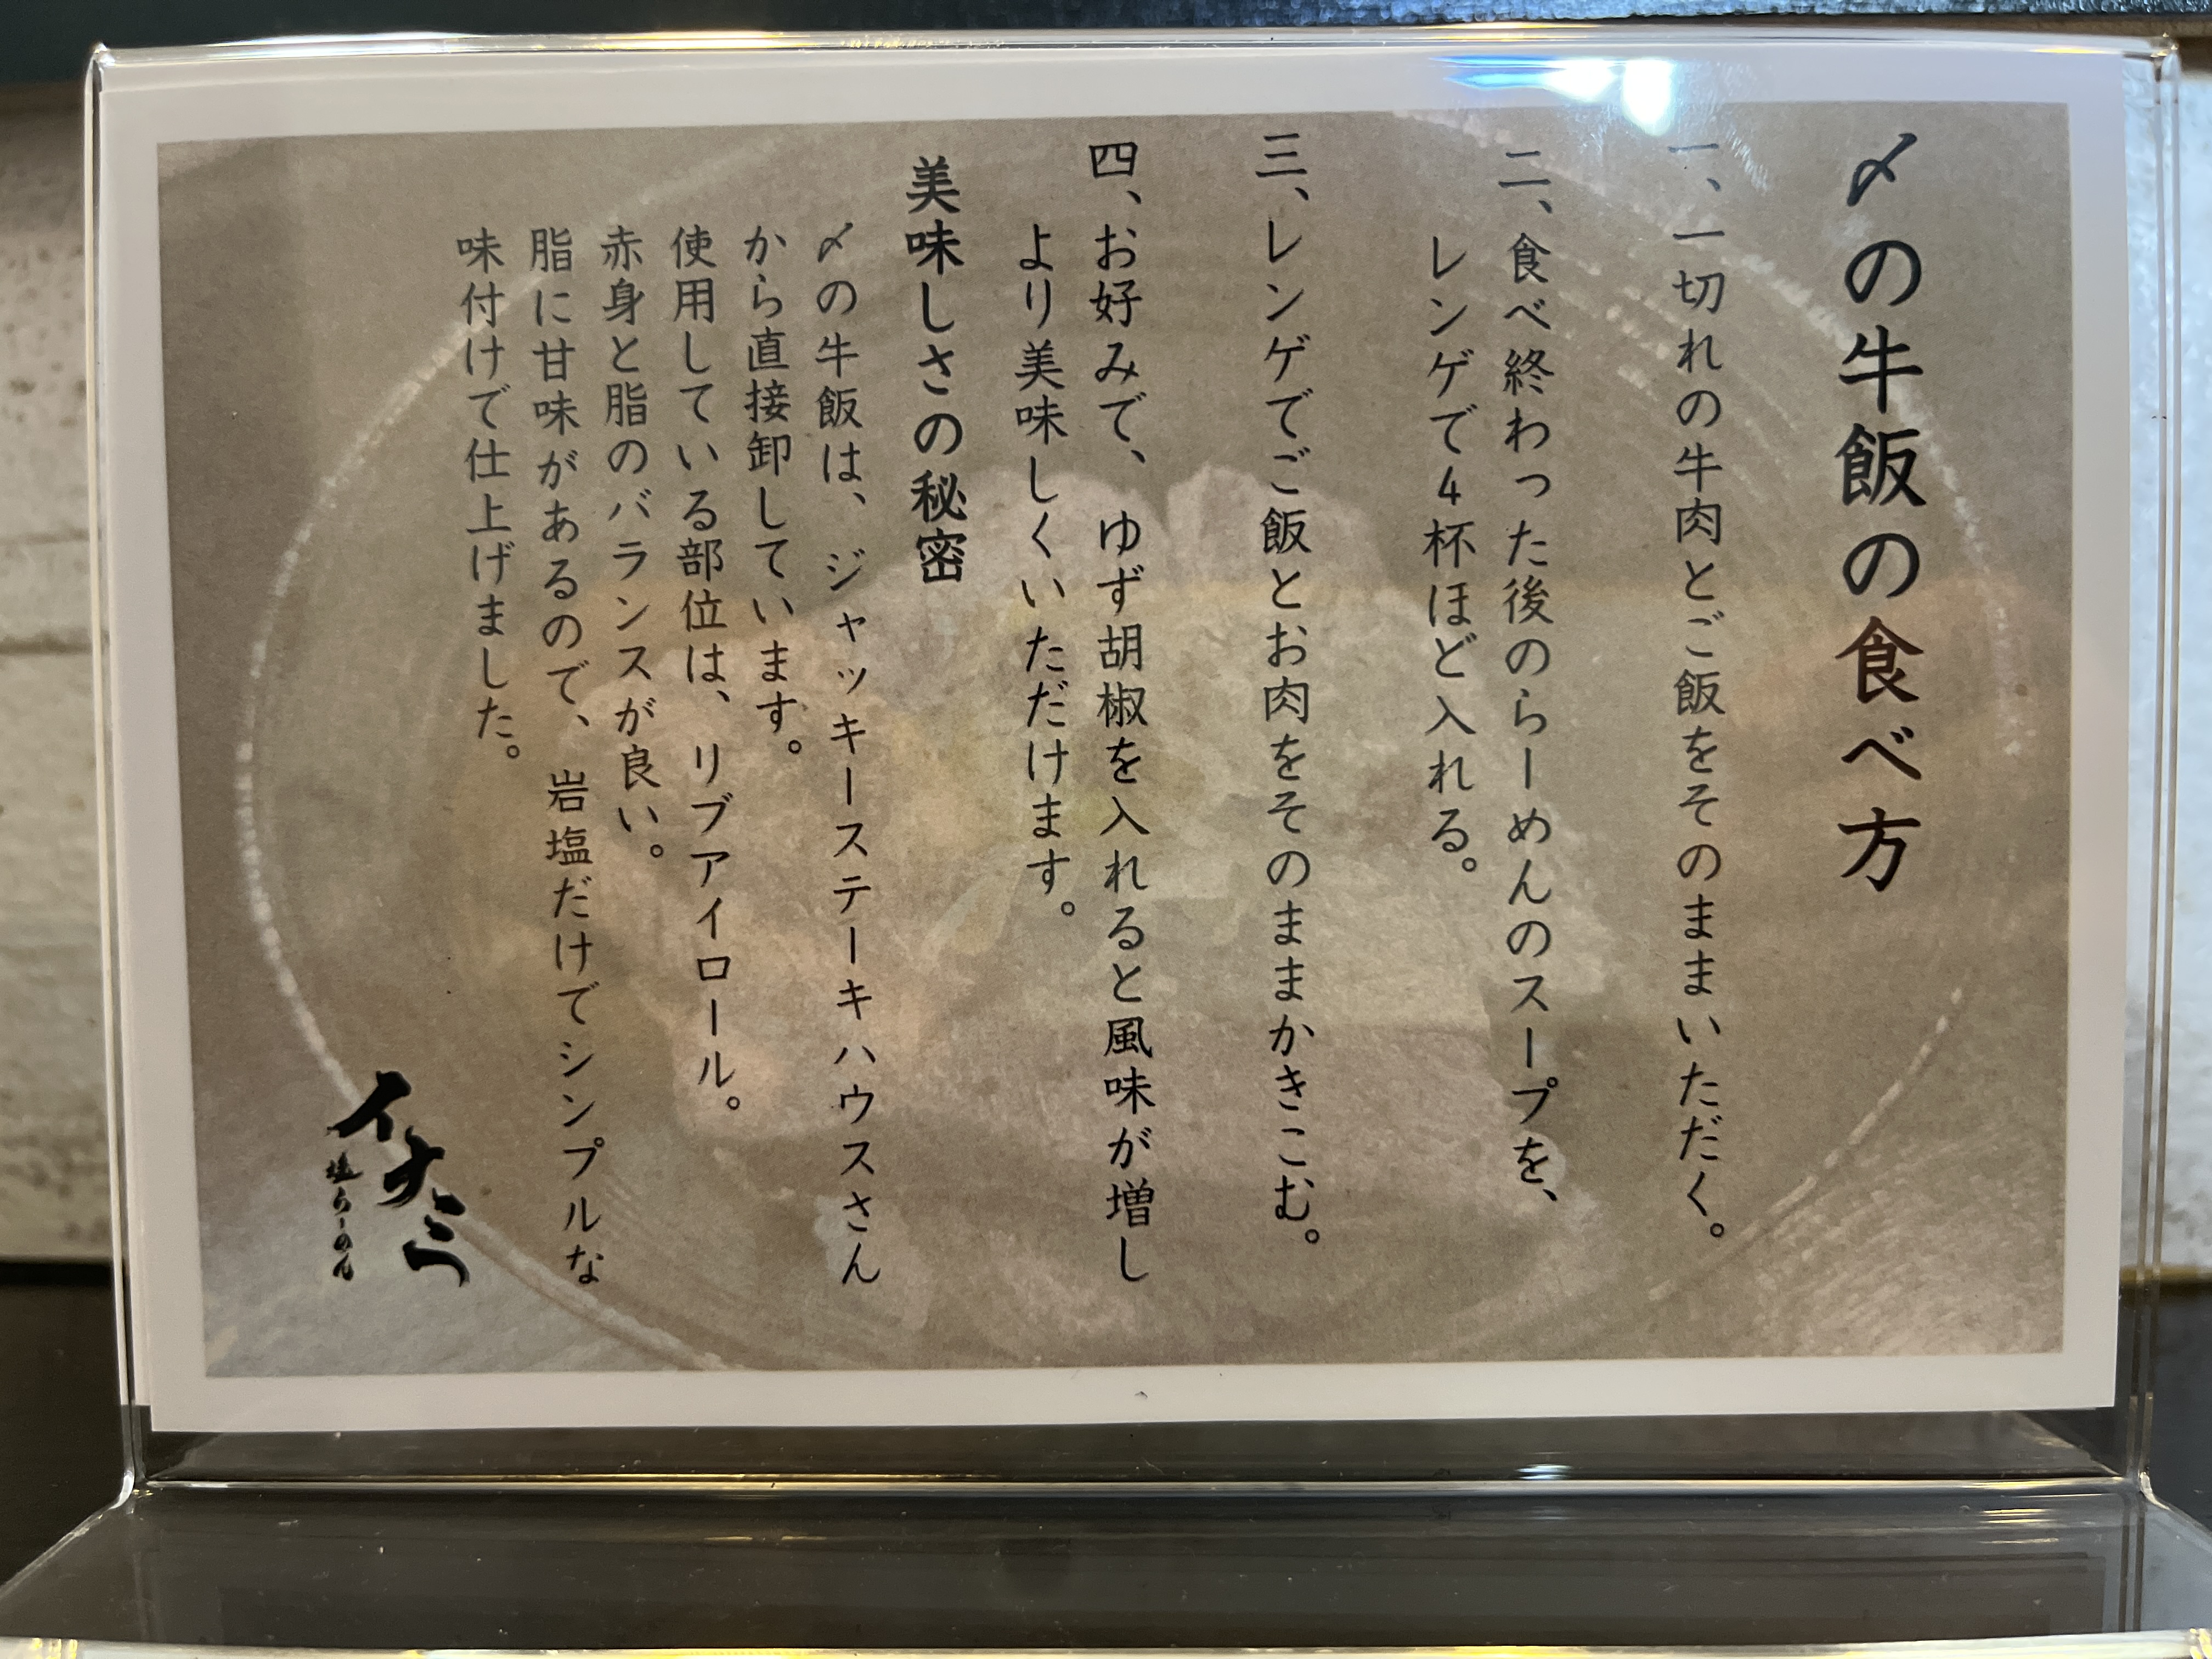 〆の牛飯の食べ方
一、一切れの牛肉とご飯をそのままいただく。
二、食べ終わった後のらーめんのスープを、
レンゲで4杯ほど入れる。
三、レンゲでご飯とお肉をそのままかきこむ。
四、お好みで、ゆず胡椒を入れると風味が増し
より美味しくいただけます。
美味しさの秘密
〆の牛飯は、ジャッキーステーキハウスさん
から直接卸しています。
使用している部位は、リブアイロール。
赤身と脂のバランスが良い。
脂に甘味があるので、岩塩だけでシンプルな
味付けで仕上げました。
イナミ
塩らーめん